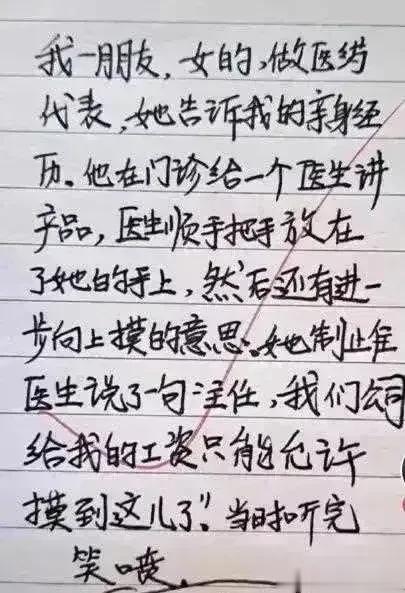 我一朋友,女的,做医药
代表,她告诉我的亲身经
历。他在门诊给一个医生讲
产品,医生顺手把手放在
了她的手上,然后还有进一
步向上摸的意思。她制止住
医生说了一句:主任,我们公司
给我的工资只能允许
摸到这儿了”。当时听完
笑喷.